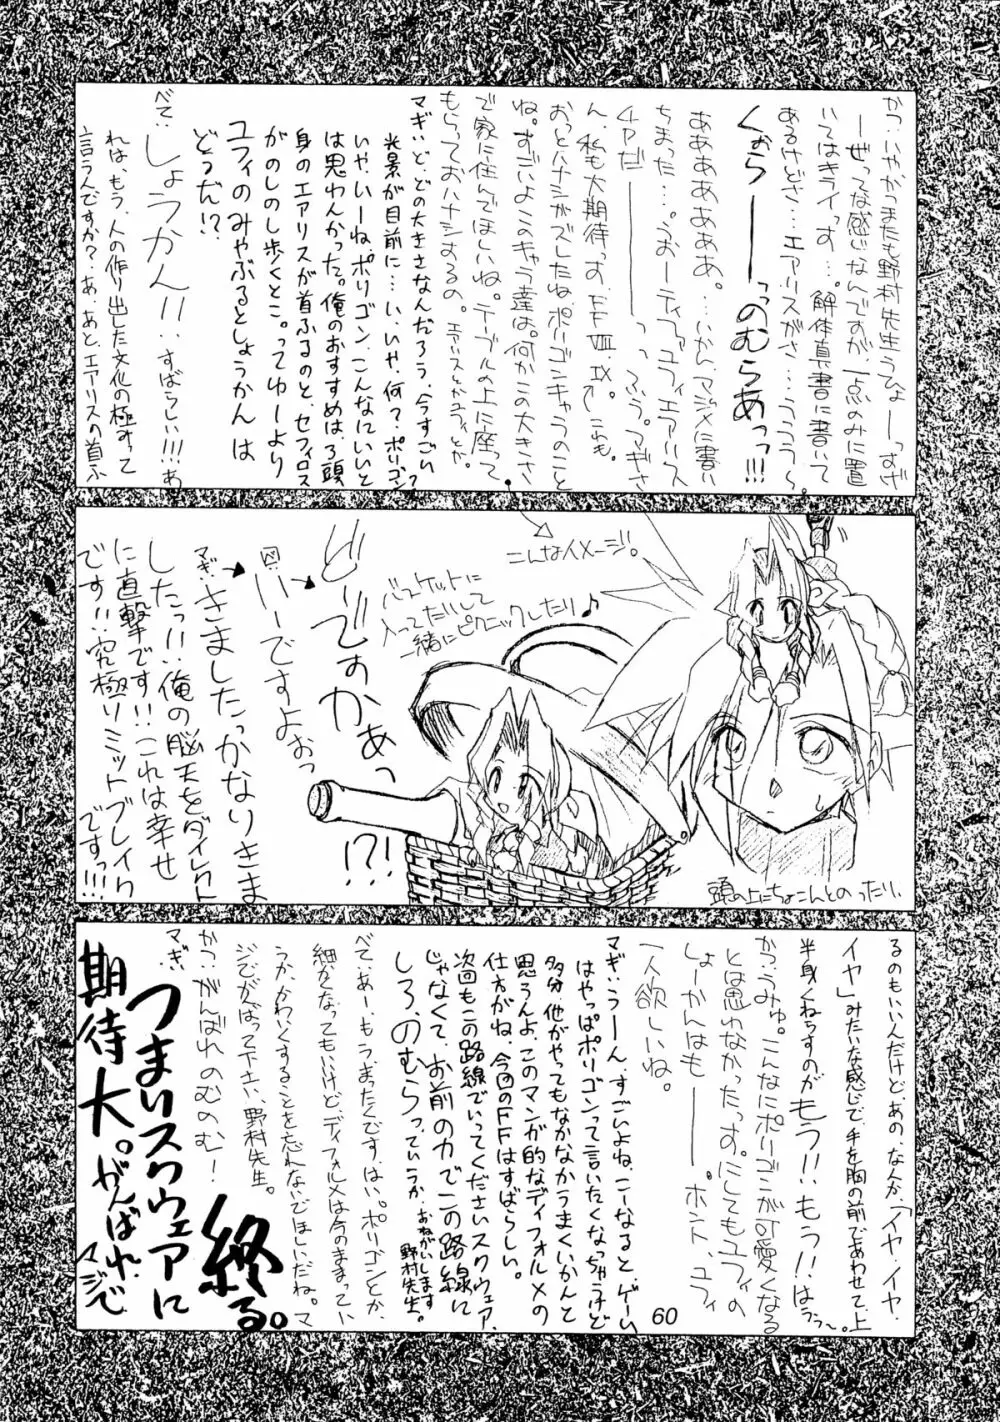 かつ:いやかつまたも野村先生うひょーっすぜ
ーぜってな感じなんですが、一点のみに置
いてはキライっす…。解体真書に書いて
あるけどさ…エアリスがさ…うううう〜。
くぉらーーーっっのむらあっっ!!!
ああああああ。…いかん、マジメに書い
ちまった…。うおーティファユフィエアリス
ん、私も大期待っす。FFⅧ Ⅸ←これも。
おっとハナシがズレたね。ポリゴンキャラのこと
ね。すごいよこのキャラ達は。何かこの大きさ
で家に住んでほしいね。テーブルの上に座って
もらっておハナシするの。エアリスとかユフィとか。
マギ:ど、どの大きさなんだろう、今すごい
光景が目前に…い、いや、何?ポリゴン?
いや、いーね、ポリゴン、こんなにいいと
は思わんかった。俺のおすすめは、3頭
身のエアリスが首ふるのと、セフィロス
がのしのし歩くとこ。ってゆーより
ユフィのみやぶるとしょうかんは
どうだ!?
べて:しょうかん!!、すばらしい!!!あ
れは、もう、人の作り出した文化の極ずって
言うんですか?、あ、あと、エアリスの首ふ
こんなイメージ。
バスケットに
入ってたりして
一緒にピクニックしたり♪
頭の上にちょこんとのったり
どーですかあっ
!?!
いーですよおっ
マギ:きましたっかなりきま
したっ!!、俺の脳天をダイレクト
に直撃です!!これは幸せ
です!!究極リミットブレイク
ですっ!!!
るのもいい人だけど、あの、なんか「イヤ・イヤ・
イヤ」みたいな感じで、手を胸の前であわせて上
半身くねらすのがもう!!もう!!はうう〜。
かつ:うみゅ。こんなにポリゴンが可愛くなる
とは思わなかったっす。にしてもユフィの
しょーかんはもーーー。ホント、ユフィ
一人欲しいね。
マギ:うーん、すごいよね、こーなると、ゲーい
はやっぱポリゴンって言いたくなっちゃうけど
多分、他がやってもなかなかうまくいかんと
思うんよ、このマンガ的なディフォルメの
仕方がね、今回のFFはすばらしい。
次回もこの路線でいってくださいスクウェア、
じゃなくて、お前の力でこの路線に
しろ、のむらっていうか、おねがいします
野村先生。
べて:あー、もう、まったくです、はい。ポリゴンとか、
細かくなってもいいけど、ディフォルメは今のままってい
うか、かわいくすることを忘れないでほしいだね。マ
ジで、がんばって下さい、野村先生。
かつ:がんばれのむのむ!
マギ:
つまりスクウェアに
期待大。がんばれ、マジで
終る。
60